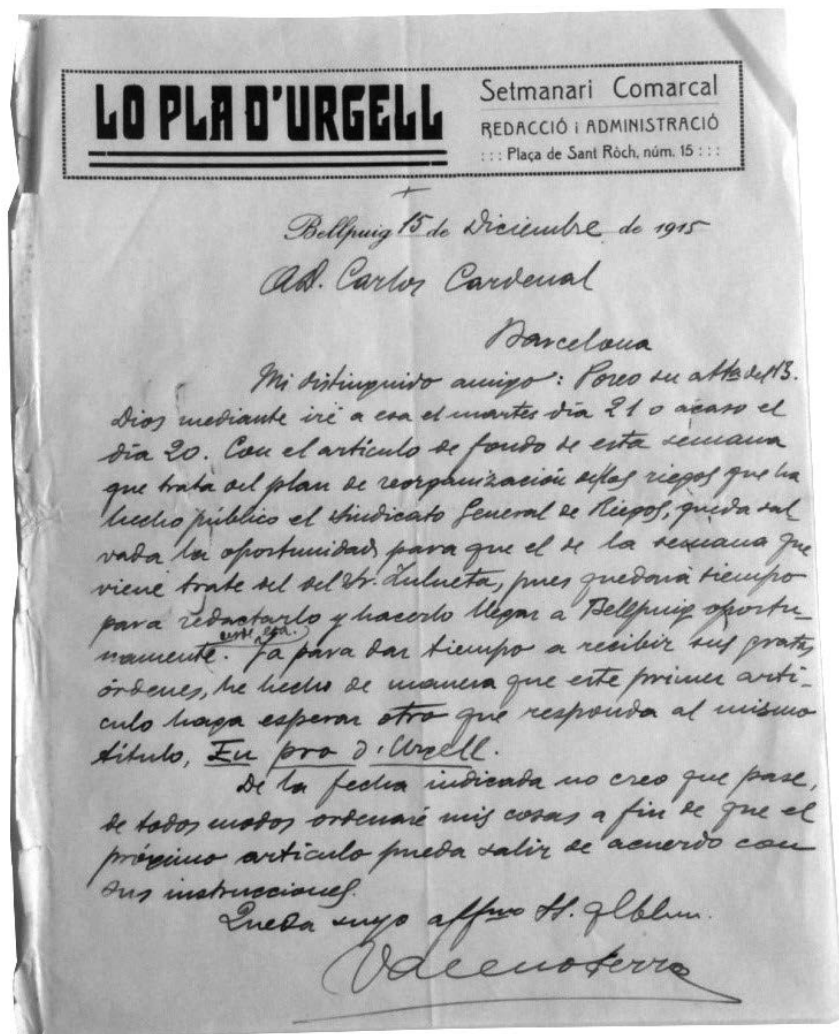 LO PLA D'URGELL
Setmanari Comarcal
REDACCIÓ i ADMINISTRACIÓ
: : : Plaça de Sant Ròch, núm. 15 : : :
Bellpuig 15 de Diciembre de 1915
A D. Carlos Cardenal
Barcelona
Mi distinguido amigo: Poseo su atta del 13.
Dios mediante iré a esa el martes día 21 o acaso el
día 20. Con el artículo de fondo de esta semana
que trata del plan de reorganización de los riegos que ha
hecho público el Sindicato General de Riegos, queda sal
vada la oportunidad para que el de la semana que
viene trate del del Sr. Zulueta, pues quedará tiempo
para redactarlo y hacerlo llegar a Bellpuig oportu-
namente. Ya para dar tiempo a recibir sus gratas
órdenes, he hecho de manera que este primer artí-
culo haga esperar otro que responda al mismo
título, En pro d'Urgell.
De la fecha indicada no creo que pase,
de todos modos ordenaré mis cosas a fin de que el
próximo artículo pueda salir de acuerdo con
sus instrucciones.
Queda suyo affmo SS.